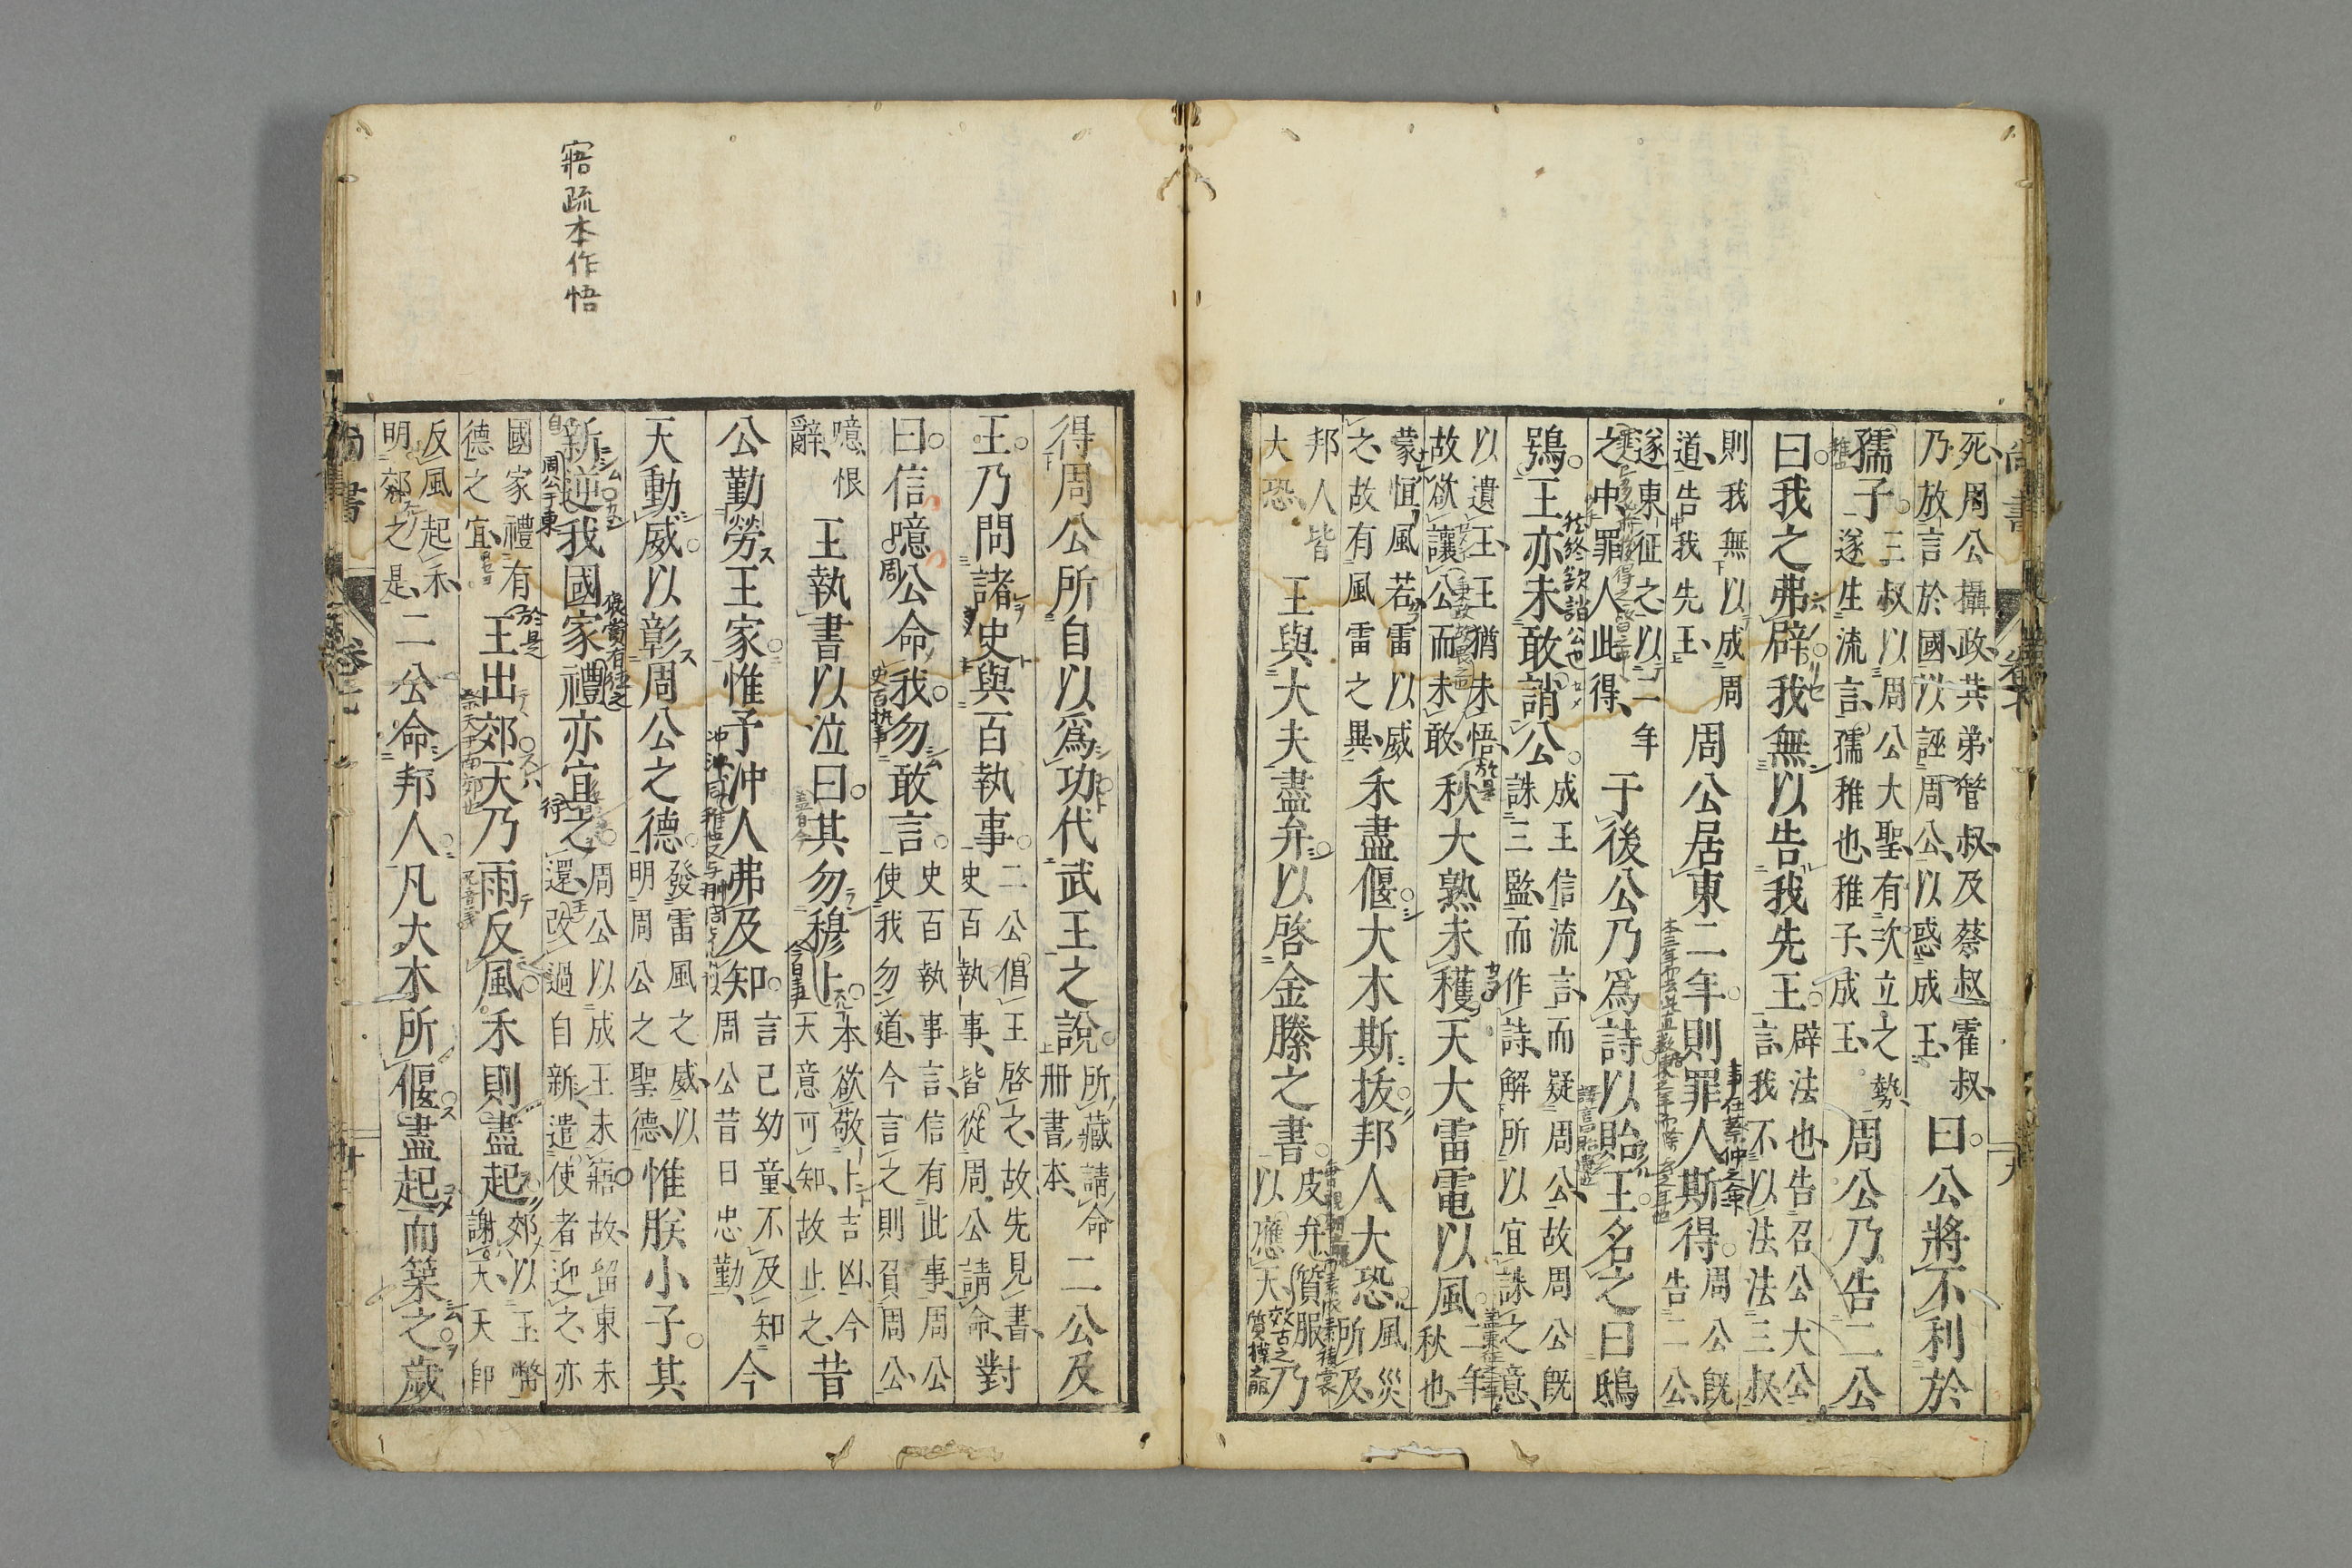 死周公攝政其弟管叔及蔡叔霍叔
乃放言於國以誣周公以惑成王
曰公將不利於
孺子
三叔以周公大聖有次立之勢
遂生流言孺稚也稚子成王
周公乃告二公
曰我之弗辟我無以告我先王
辟法也告召公大公
言我不以法法三叔
則我無以成周
道告我先王
周公居東二年則罪人斯得
周公既
告二公
遂東征之以二年
之中罪人此得
于後公乃爲詩以貽王名之曰鴟
鴞王亦未敢誚公
成王信流言而疑周公故周公既
誅三監而作詩解所以宜誅之意
以遺王王猶未悟
故欲讓公而未敢
秋大熟未穫天大雷電以風
二年
秋也
蒙恒風若雷以威
之故有風雷之異
禾盡偃大木斯拔邦人大恐
風災
所及
邦人皆
大恐
王與大夫盡弁以啓金縢之書
皮弁質服
以應天
乃
得周公所自以爲功代武王之說
所藏請命
冊書本
二公及
王乃問諸史與百執事
二公倡王啓之故先見書
史百執事皆從周公請命
對
曰信噫公命我勿敢言
史百執事言信有此事周公
使我勿道今言之則負周公
噫恨
辭
王執書以泣曰其勿穆卜
本欲敬卜吉凶今
天意可知故止之
昔
公勤勞王家惟予沖人弗及知
言己幼童不及知
周公昔日忠勤
今
天動威以彰周公之德
發雷風之威以
明周公之聖德
惟朕小子其
新逆我國家禮亦宜之
周公以成王未寤故留東未
還改過自新遣使者迎之亦
國家禮有
德之宜
王出郊天乃雨反風禾則盡起
郊以玉幣
謝天天即
反風起禾
明郊之是
二公命邦人凡大木所偃盡起而築之歲
寤疏本作悟